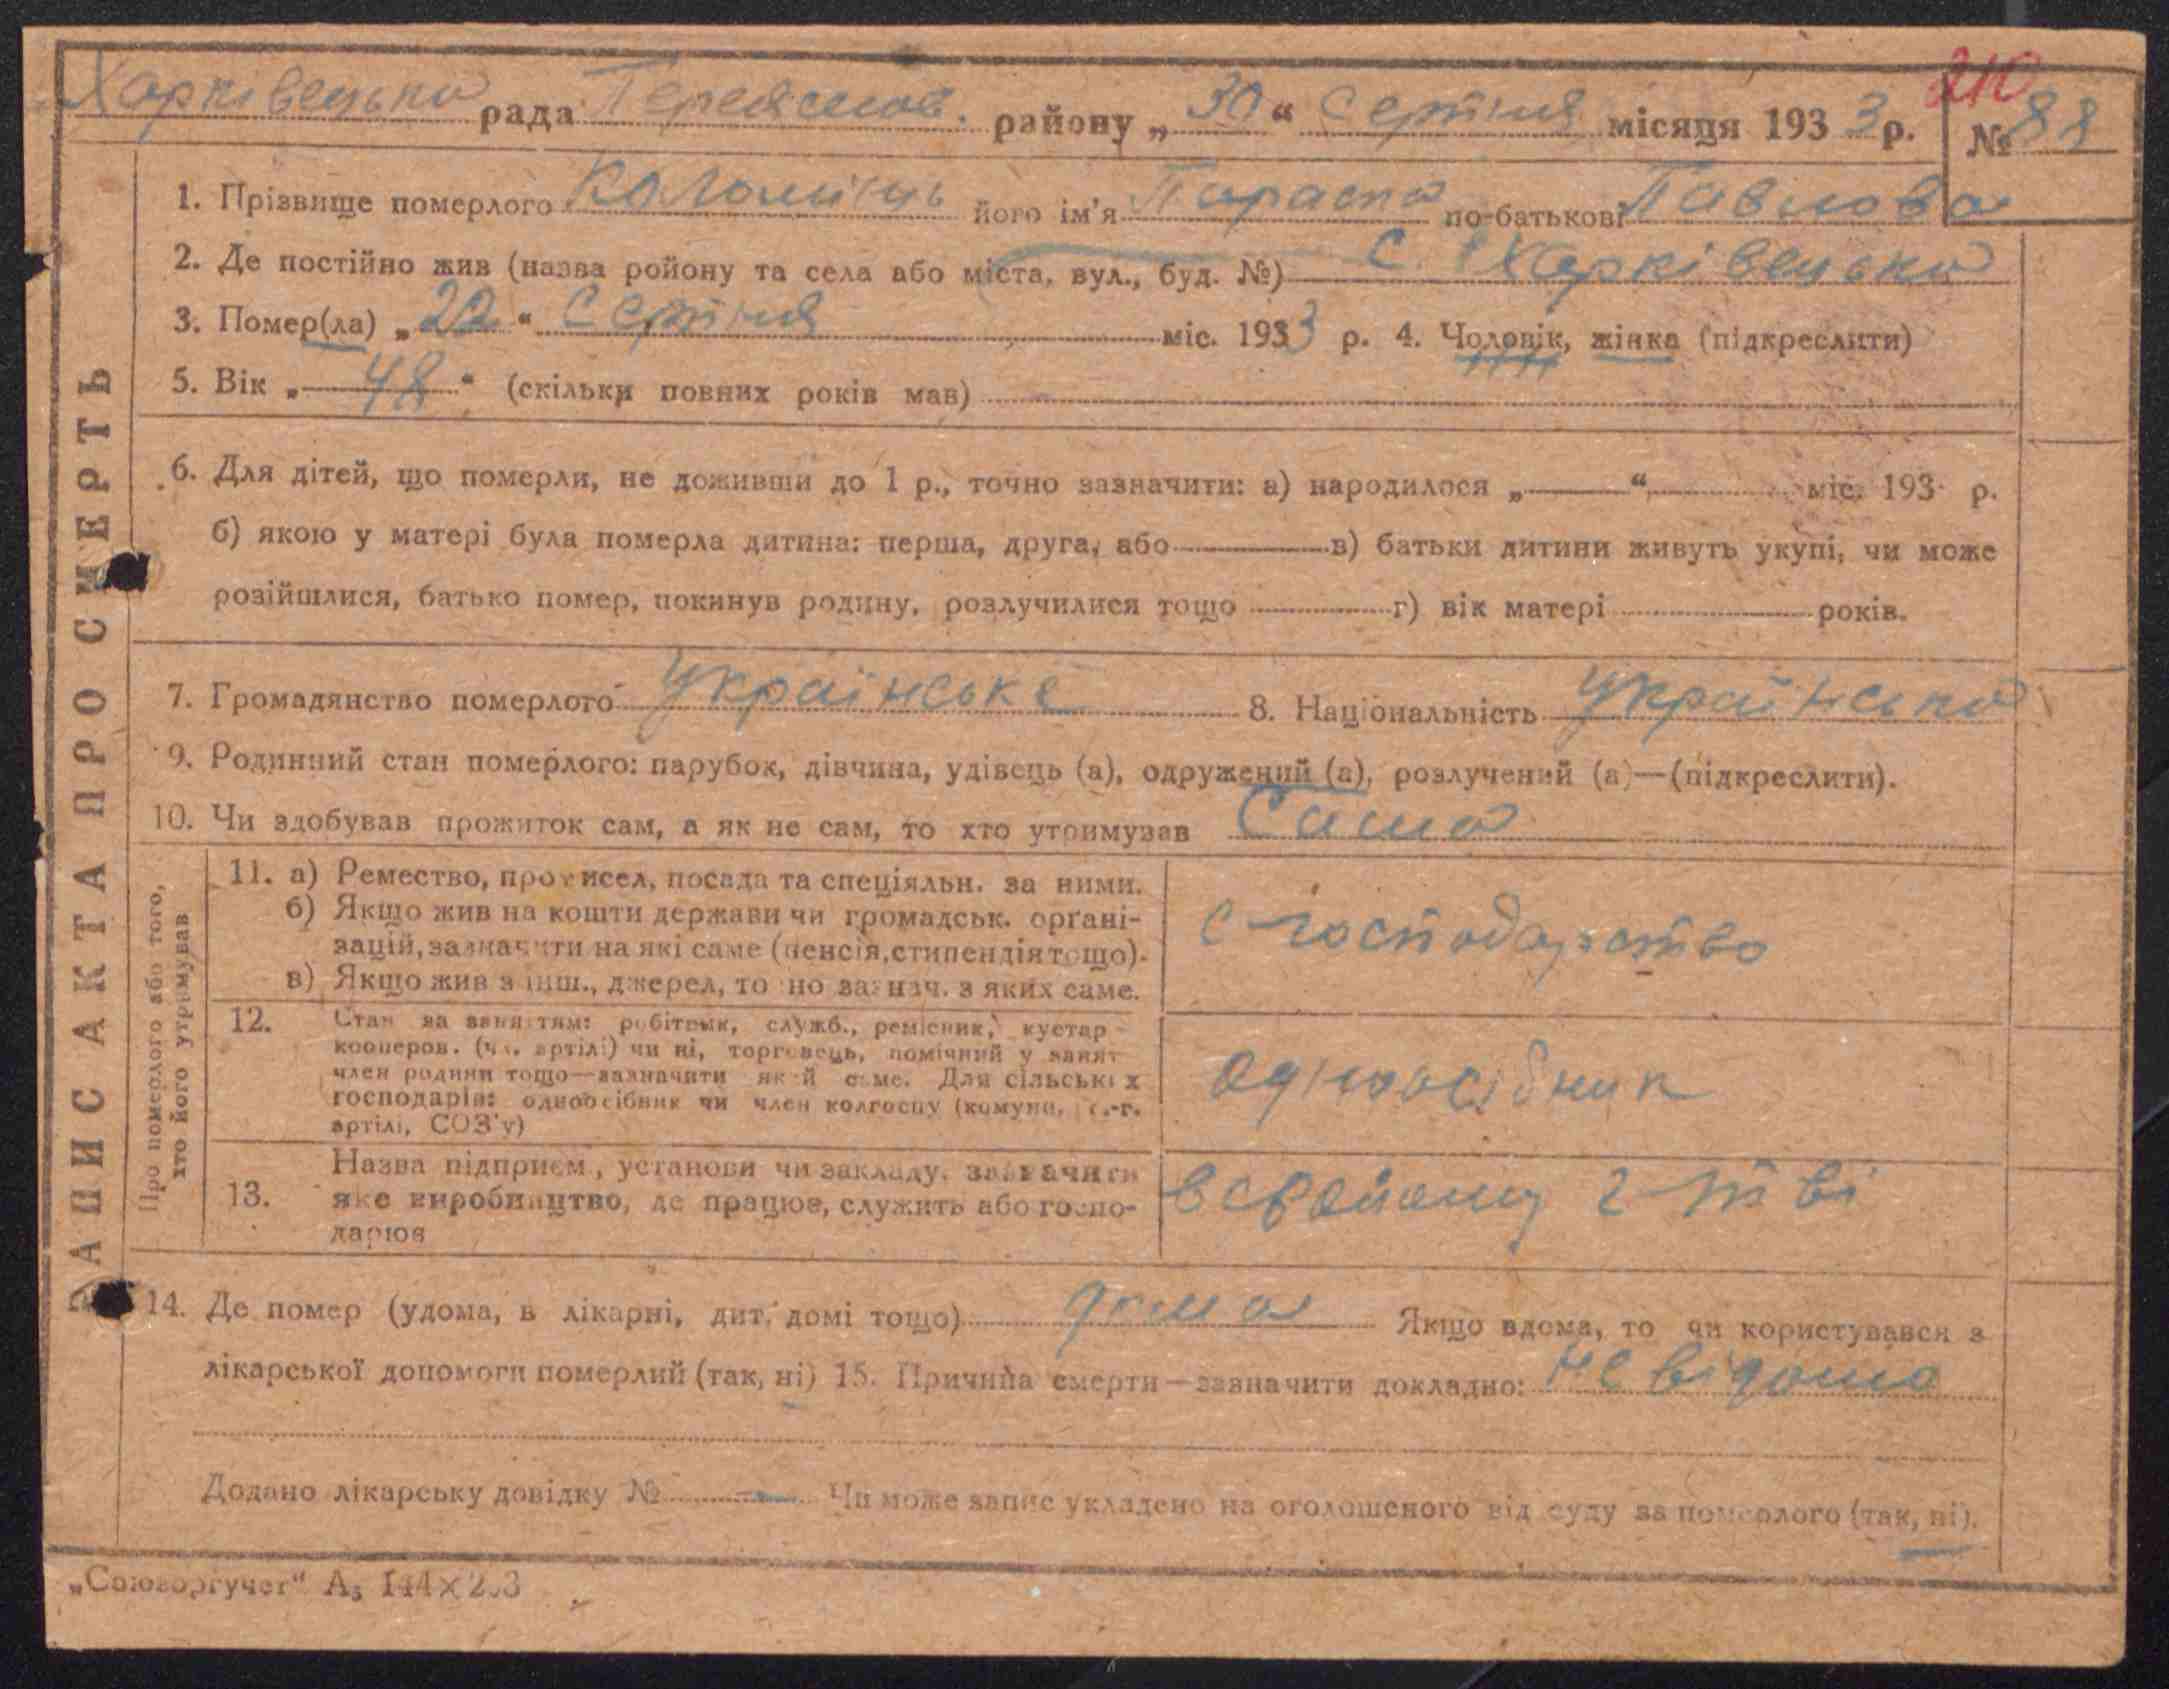 210
Харківецька рада Переяслов. району „30“ Серпня місяця 1933 р. № 88
ЗАПИС АКТА ПРО СМЕРТЬ
1. Прізвище померлого Коломієць його ім'я Параска по-батькові Павлова
2. Де постійно жив (назва ройону та села або міста, вул., буд. №) с. Харківецька
3. Помер(ла) „22“ Серпня міс. 1933 р. 4. Чоловік, жінка (підкреслити)
5. Вік „48“ (скільки повних років мав)
6. Для дітей, що померли, не доживши до 1 р., точно зазначити: а) народилося „ “ міс. 193 р.
б) якою у матері була померла дитина: перша, друга, або в) батьки дитини живуть укупі, чи може
розійшлися, батько помер, покинув родину, розлучилися тощо г) вік матері років.
7. Громадянство померлого українське 8. Національність українська
9. Родинний стан померлого: парубок, дівчина, удівець (а), одружений (а), розлучений (а)—(підкреслити).
10. Чи здобував прожиток сам, а як не сам, то хто утримував Сама
Про померлого або того,
хто його утримував
11. а) Ремество, промисел, посада та спеціяльн. за ними.
б) Якщо жив на кошти держави чи громадськ. орґані-
зацій, зазначити на які саме (пенсія, стипендія тощо).
в) Якщо жив з інш., джерел, точно зазнач. з яких саме.
с господарство
12. Стан за заняттям: робітник, служб., ремісник, кустар
кооперов. (чл. артілі) чи ні, торговець, помічний у занят
член родини тощо—зазначити який саме. Для сільських
господарів: одноосібник чи член колгоспу (комуни, с.-г.
артілі, СОЗ'у)
одноосібник
13. Назва підприєм., установи чи закладу, зазначити
яке виробництво, де працює, служить або госпо-
дарює
в своєму г-тві
14. Де помер (удома, в лікарні, дит. домі тощо) дома Якщо вдома, то чи користувався з
лікарської допомоги померлий (так, ні) 15. Причина смерти—зазначити докладно: не відомо
Додано лікарську довідку № — Чи може запис укладено на оголошеного від суду за померлого (так, ні).
„Союзоргучет“ А₅ 144×203